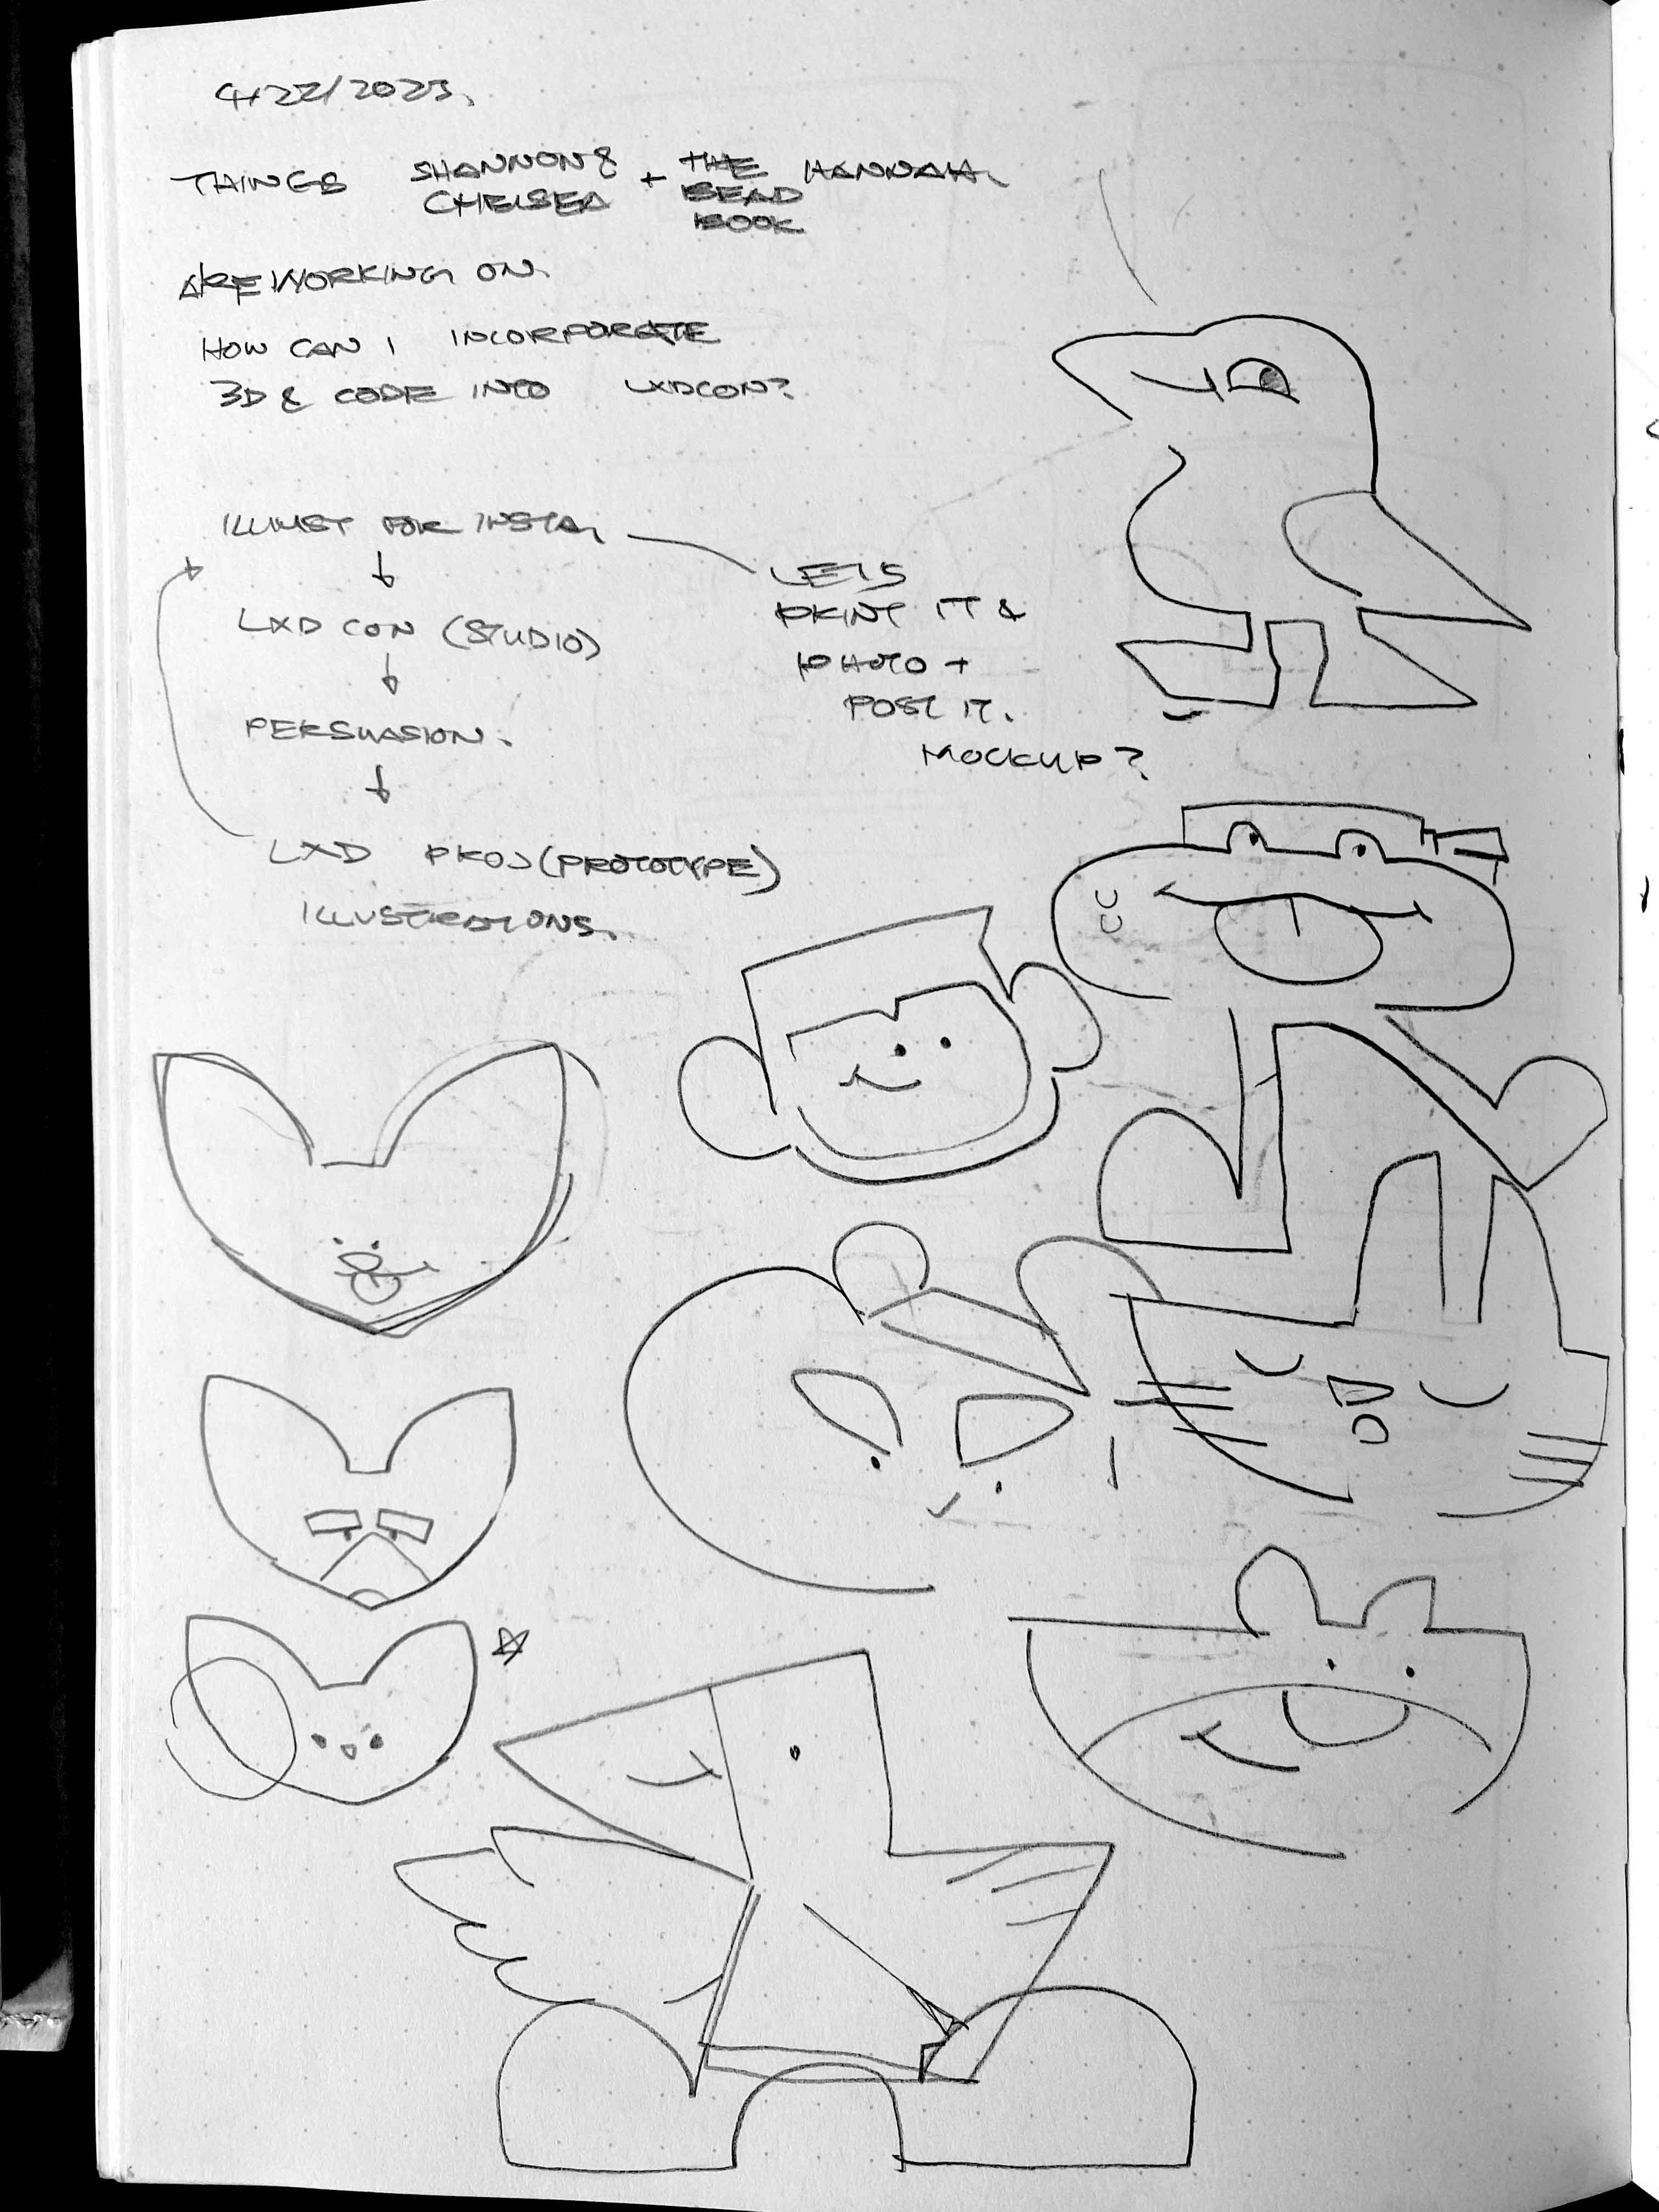 4/22/2023.
THINGS SHANNON & CHELSEA + THE BEAD BOOK HANNAH.
ARE WORKING ON.
HOW CAN I INCORPORATE
3D & CODE INTO LXDCON?
ILLUST FOR INSTA,
LXD CON (STUDIO)
PERSUASION.
LXD PROJ (PROTOTYPE)
ILLUSTRATIONS.
LETS
PRINT IT &
PHOTO +
POST IT.
MOCKUP?